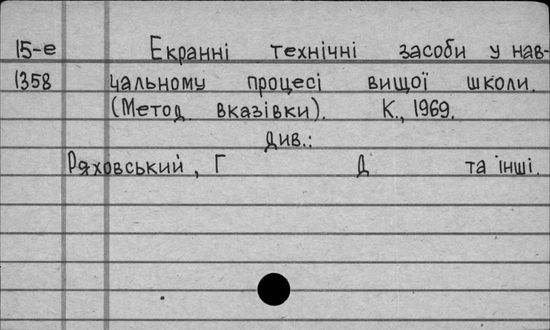 15-е Екранні технічні засоби у нав-
1358 чальному процесі вищої школи.
(Метод. вказівки). К., 1969.
див.:
Ряховський, Г Д та інші.